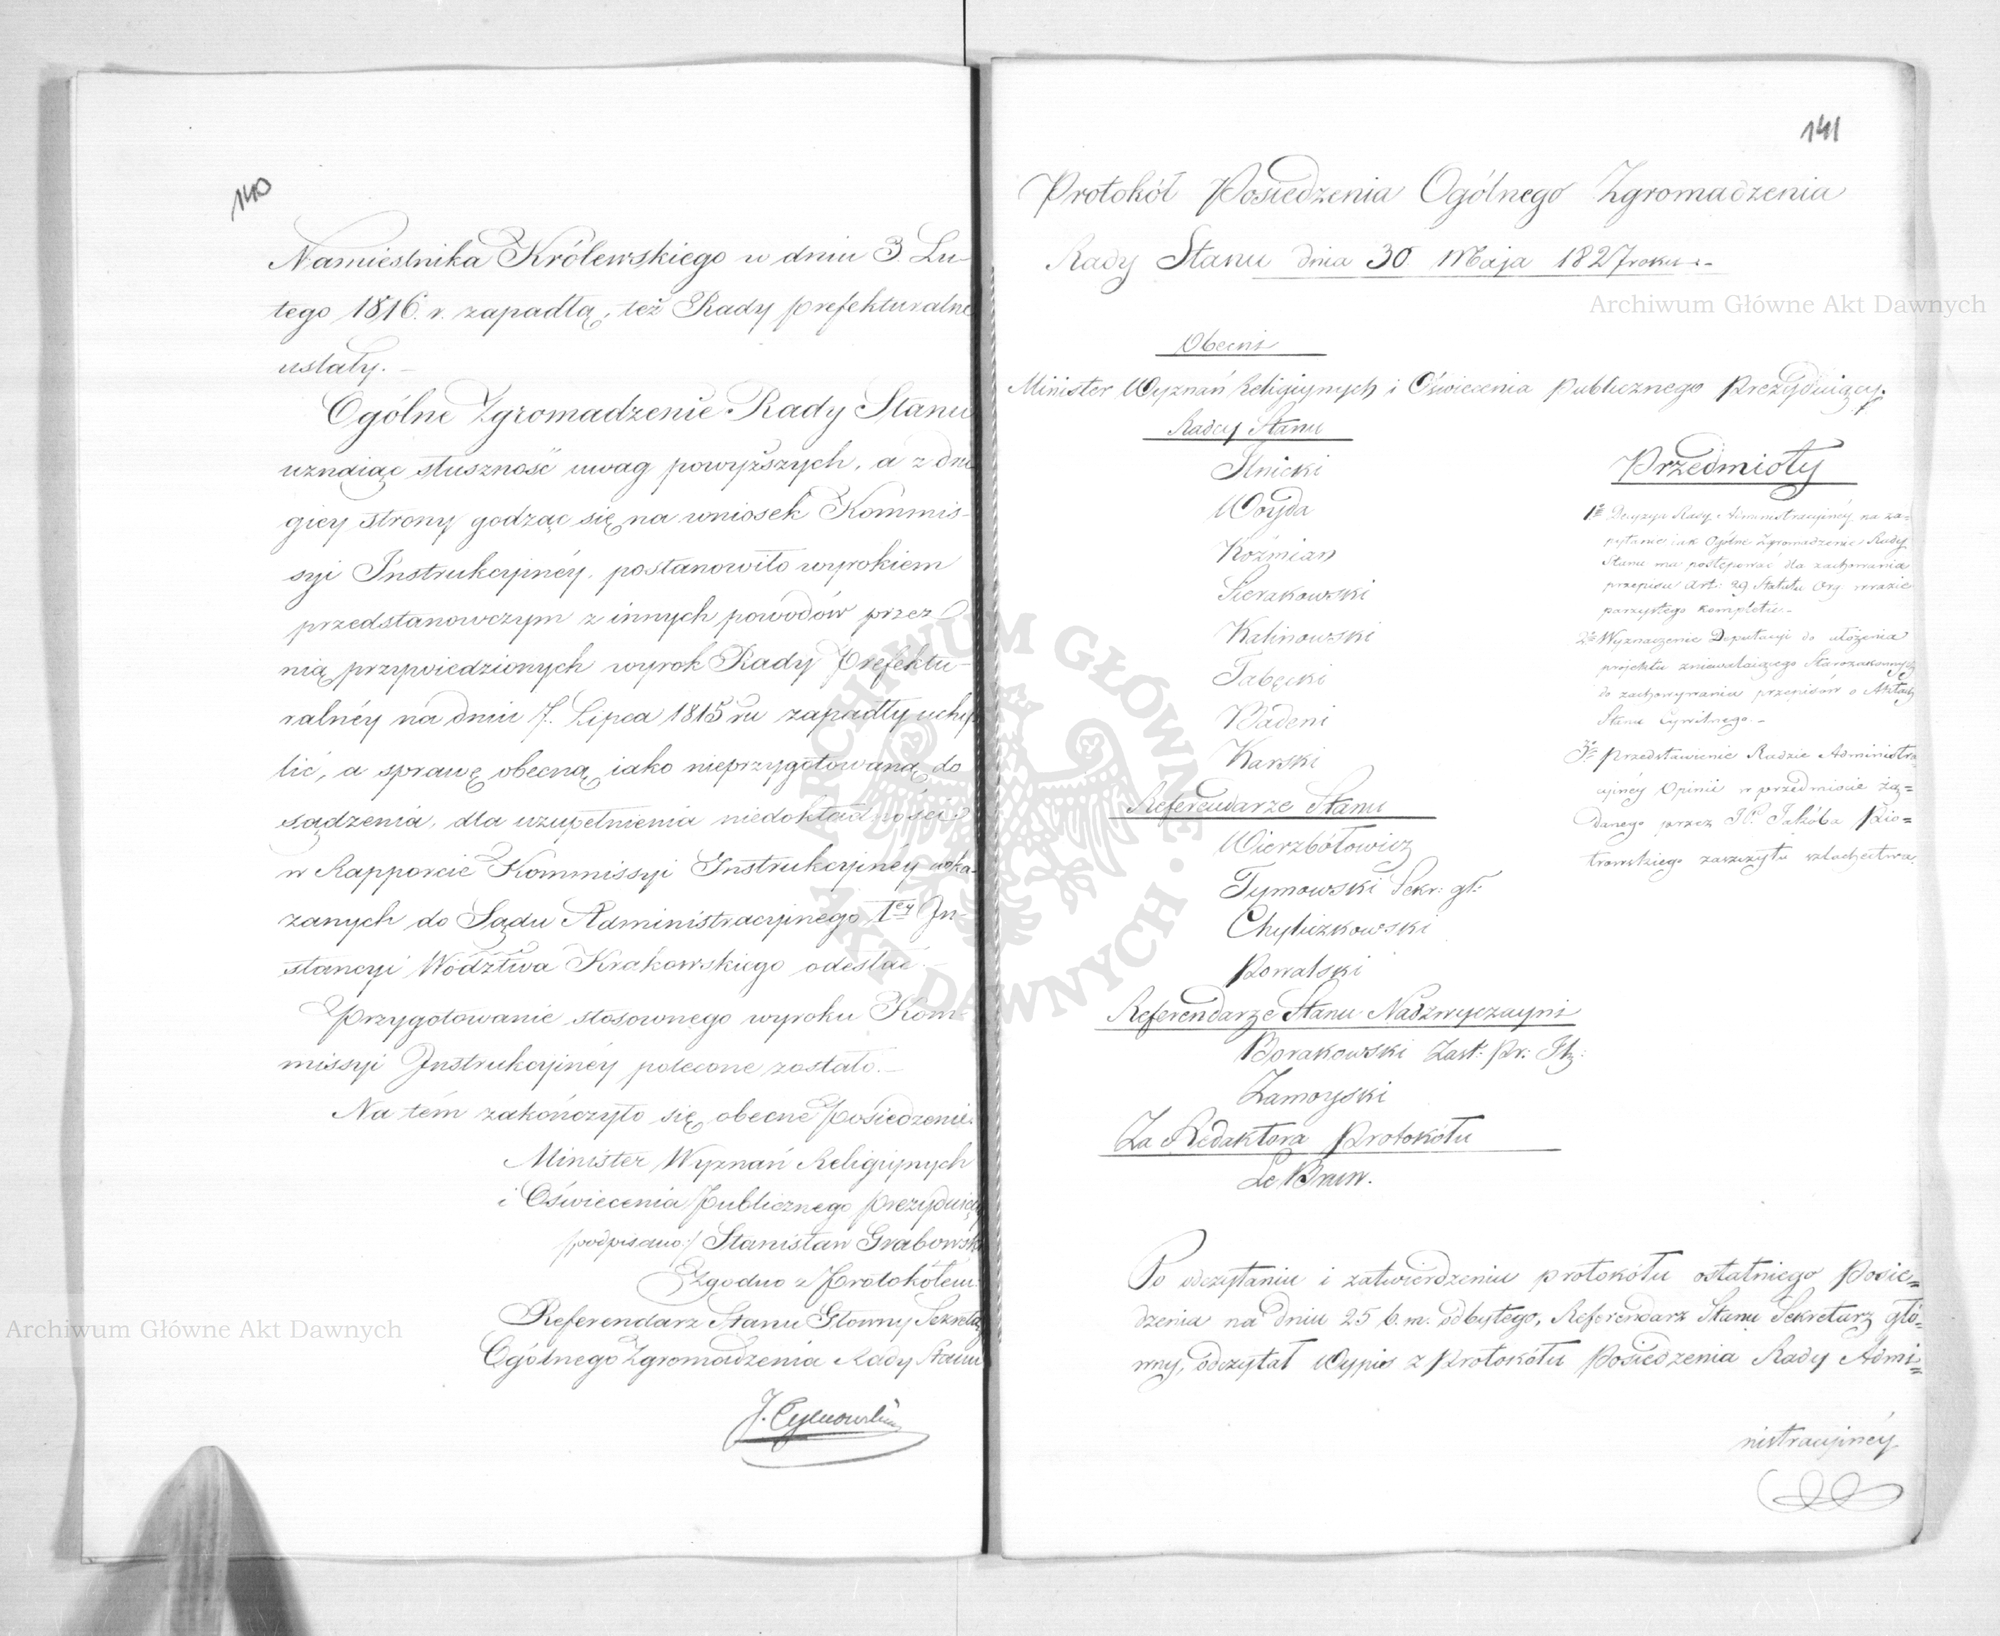 140
Namiestnika Królewskiego w dniu 3. Lu-
tego 1816. r. zapadłą, też Rady prefekturalne
ustały. —
Ogólne Zgromadzenie Rady Stanu
uznaiąc słuszność uwag powyższych, a z dru
giey strony godząc się na wniosek Kommis-
syi Instrukcyinéy, postanowiło wyrokiem
przedstanowczym z innych powodów przez
nią przywiedzionych wyrok Rady Prefektu-
ralnéy na dniu 7. Lipca 1815 ru zapadły uchy
lić, a sprawę obecną, iako nieprzygotowaną do
sądzenia, dla uzupełnienia niedokładności
w Rapporcie Kommissyi Instrukcyinéy wska-
zanych do Sądu Administracyinego Iey In-
stancyi Wództwa Krakowskiego odesłać. —
Przygotowanie stosownego wyroku Kom-
missyi Instrukcyinéy polecone zostało. —
Na tém zakończyło się obecne Posiedzenie.
Minister Wyznań Religiynych
i Oświecenia Publicznego prezyduiący
/podpisano:/ Stanisław Grabowski
Zgodno z Protokółem:
Referendarz Stanu Głowny Sekretarz
Ogólnego Zgromadzenia Rady Stanu
J. Tymowski
141
Protokół Posiedzenia Ogólnego Zgromadzenia
Rady Stanu dnia 30 Maja 1827 roku. -
Obecni
Minister Wyznań Religiynych i Oświecenia Publicznego Prezyduiący.
Radcy Stanu
Ilnicki
Woyda
Koźmian
Sierakowski
Kalinowski
Tabęcki
Badeni
Karski
Referendarze Stanu
Wierzbółowicz
Tymowski Sekr: gł:
Chyliczkowski
Kowalski
Referendarze Stanu Nadzwyczayni
Borakowski Zast: Pr: Jlz:
Zamoyski
Za Redaktora Protokółu
Le Brun.
Przedmioty
1e Decyzya Rady Administracyinéy na za-
pytanie iak Ogólne Zgromadzenie Rady
Stanu ma postępować dla zachowania
przepisu Art: 29 Statutu Org. w razie
parzystego kompletu. -
2e Wyznaczenie Deputacyi do ułożenia
projektu zniewalaiącego Starozakonnych
do zachowywania przepisów o Aktach
Stanu Cywilnego. -
3e Przedstawienie Radzie Administra-
cyinéy Opinii w przedmiocie żą=
danego przez JP. Jakóba Pio=
trowskiego zaszczytu szlachectwa.
Po odczytaniu i zatwierdzeniu protokółu ostatniego Posie=
dzenia na dniu 25 b. m. odbytego, Referendarz Stanu Sekretarz głó-
wny, odczytał Wypis z Protokółu Posiedzenia Rady Admi=
nistracyinéy
Archiwum Główne Akt Dawnych
Archiwum Główne Akt Dawnych
ARCHIWUM GŁÓWNE AKT DAWNYCH